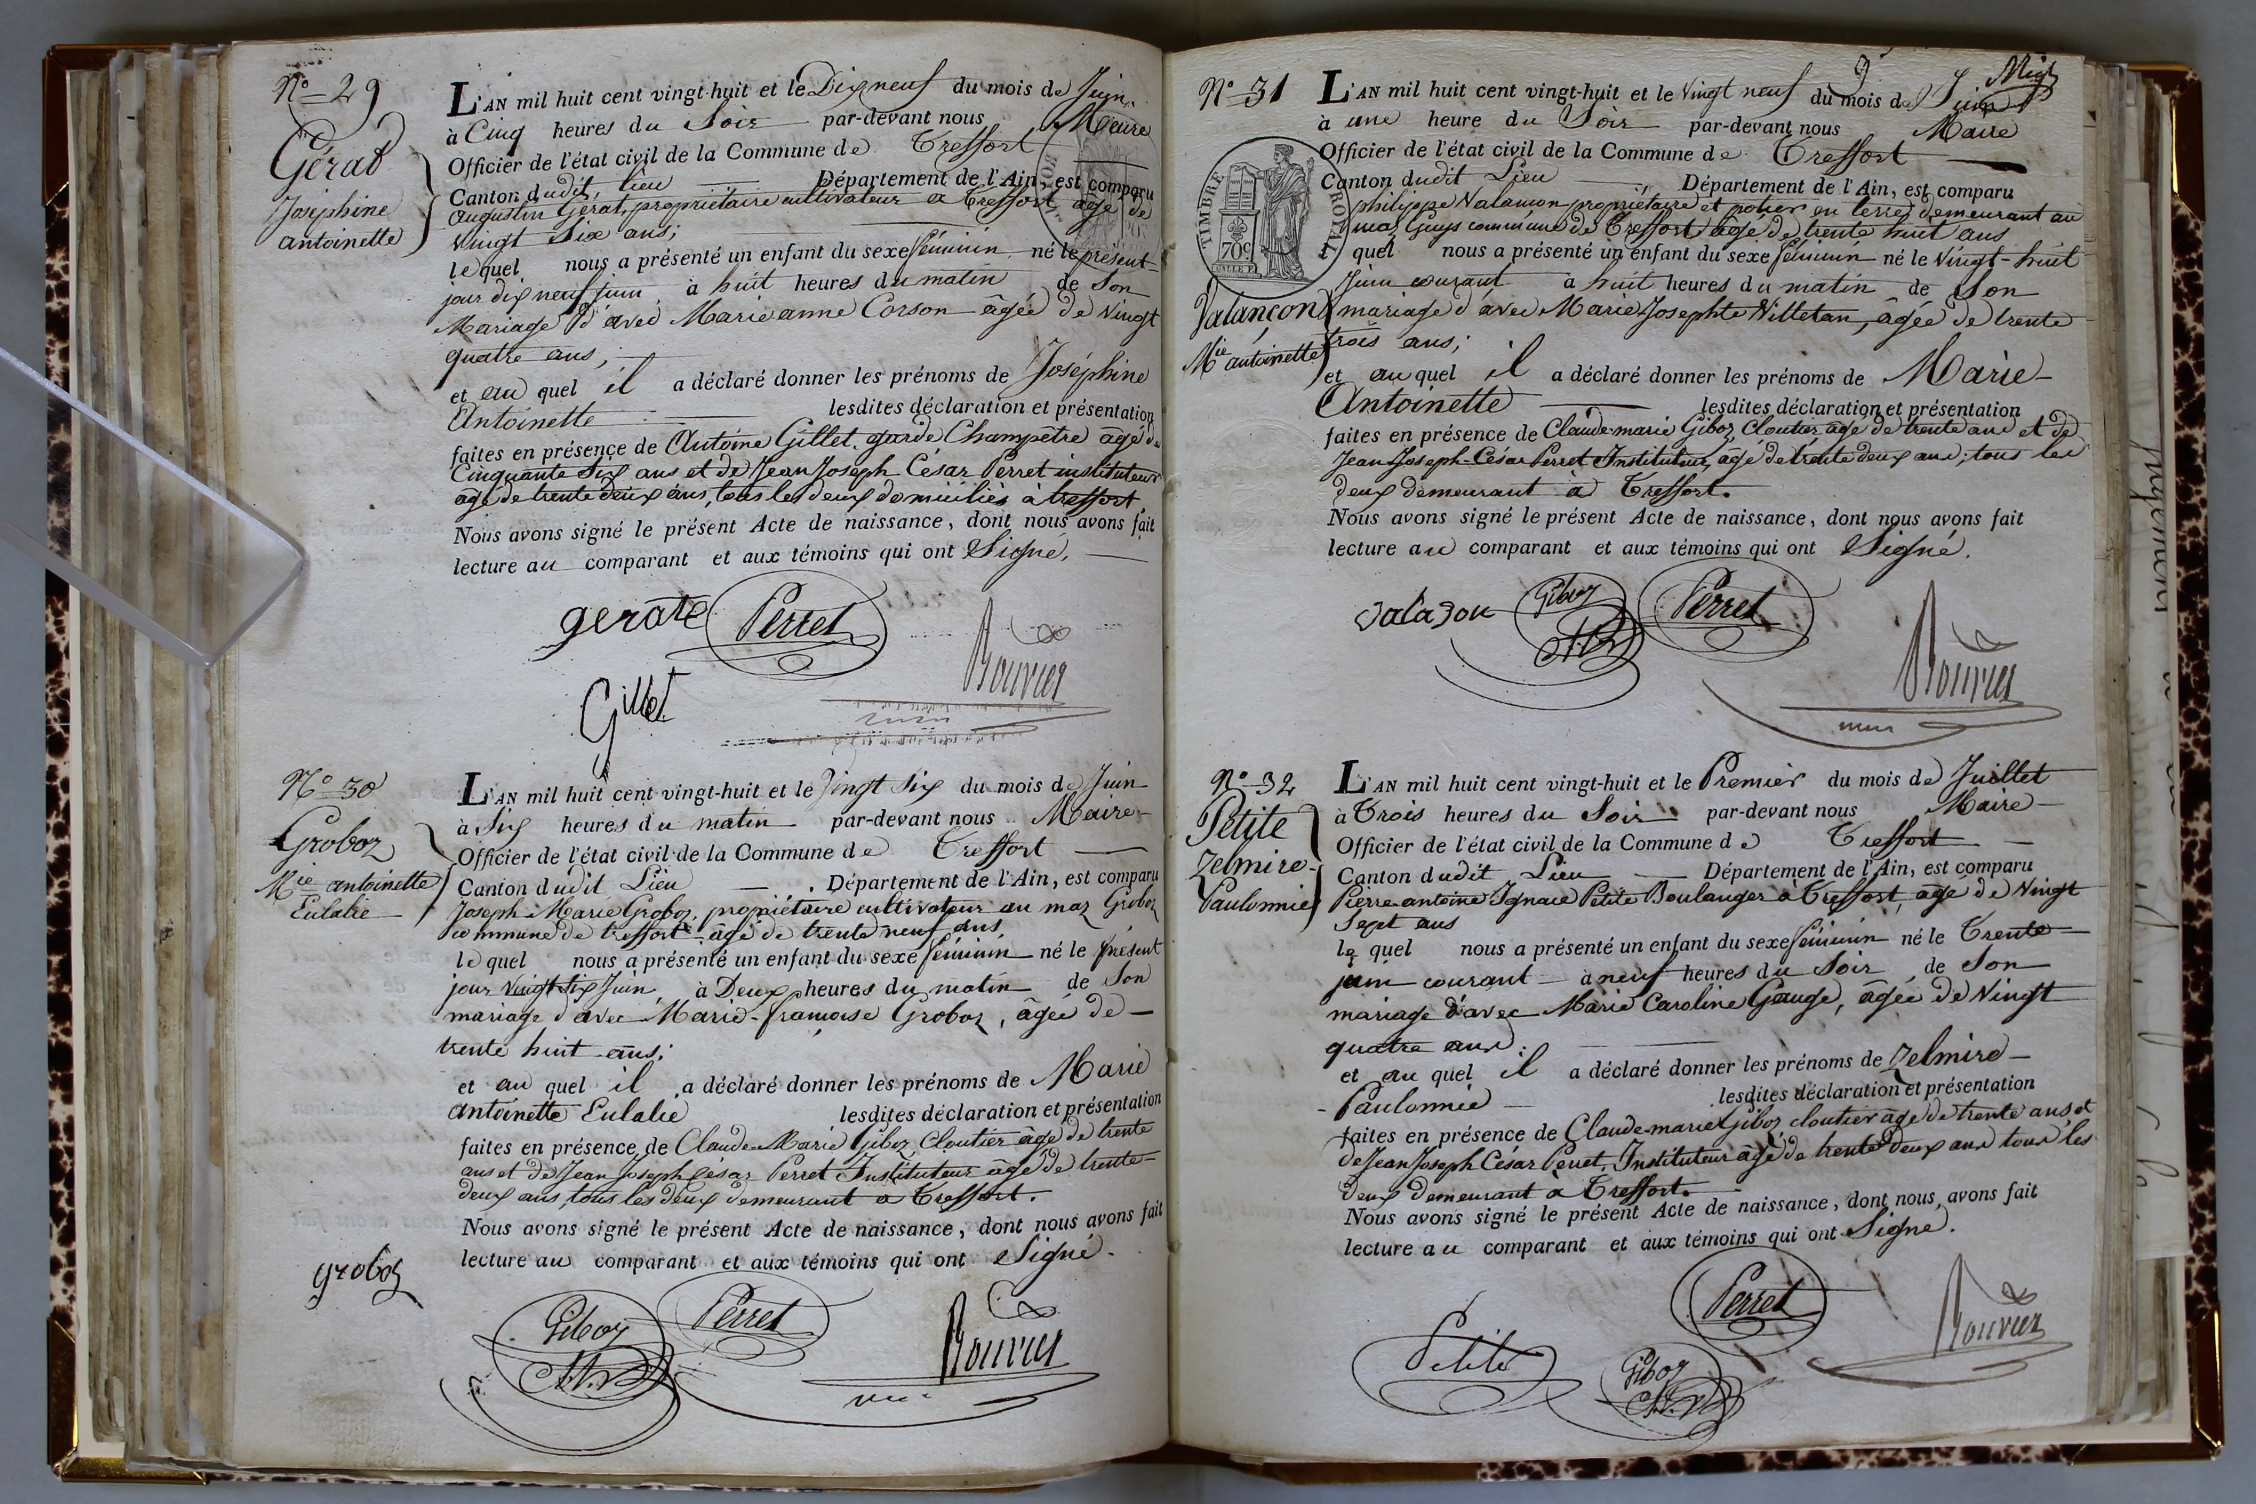 N.º 29
Gérat
Joséphine
antoinette
L'AN mil huit cent vingt-huit et le Dix neuf du mois de Juin
à Cinq heures du Soir par-devant nous Maire
Officier de l'état civil de la Commune de Treffort
Canton dudit lieu Département de l'Ain, est comparu
augustin Gérat, propriétaire cultivateur à Treffort agé de
Vingt Six ans;
le quel nous a présenté un enfant du sexe féminin né le présent
jour dix neuf juin à huit heures du matin de Son
Mariage d'avec Marie anne Corson âgée de Vingt
quatre ans;
et au quel il a déclaré donner les prénoms de Joséphine
Antoinette lesdites déclaration et présentation
faites en présence de Antoine Gillet garde Champêtre âgé de
Cinquante Six ans et de Jean Joseph César Perret instituteur
agé de trente deux ans, tous les deux domiciliés à treffort
Nous avons signé le présent Acte de naissance, dont nous avons fait
lecture au comparant et aux témoins qui ont Signé.
gerate Perret
Bouvier
Gillet
N.º 30
Groboz
M.ie antoinette
Eulalie
L'AN mil huit cent vingt-huit et le Vingt Six du mois de Juin
à Six heures du matin par-devant nous Maire
Officier de l'état civil de la Commune de Treffort
Canton dudit Lieu Département de l'Ain, est comparu
Joseph Marie Groboz, propriétaire cultivateur au maz Groboz
commune de treffort âgé de trente neuf ans,
le quel nous a présenté un enfant du sexe féminin né le présent
jour Vingt Six Juin à Deux heures du matin de Son
mariage d'avec Marie-françoise Groboz, âgée de
trente huit ans;
et au quel il a déclaré donner les prénoms de Marie
antoinette Eulalie lesdites déclaration et présentation
faites en présence de Claude-Marie Giboz, Cloutier âgé de trente
ans et de Jean Joseph César Perret Instituteur âgé de trente
deux ans, tous les deux demeurant à Treffort.
Nous avons signé le présent Acte de naissance, dont nous avons fait
lecture au comparant et aux témoins qui ont Signé.
groboz
Giboz Perret
Bouvier
N.º 31
TIMBRE ROYAL
70c
Valançon
M.ie antoinette
L'AN mil huit cent vingt-huit et le Vingt neuf du mois de Juin
à une heure du Soir par-devant nous Maire
Officier de l'état civil de la Commune de Treffort
Canton dudit Lieu Département de l'Ain, est comparu
philippe Valançon propriétaire et potier en terre, demeurant au
maz Guys commune de Treffort âgé de trente huit ans
quel nous a présenté un enfant du sexe féminin né le Vingt-huit
Juin courant à huit heures du matin de Son
mariage d'avec Marie Josephte Villetan, âgée de trente
trois ans;
et au quel il a déclaré donner les prénoms de Marie
Antoinette lesdites déclaration et présentation
faites en présence de Claude-marie Giboz, Cloutier âgé de trente ans et de
Jean Joseph-César Perret Instituteur, âgé de trente deux ans, tous les
deux demeurant à Treffort.
Nous avons signé le présent Acte de naissance, dont nous avons fait
lecture au comparant et aux témoins qui ont Signé.
Giboz Perret
Bouvier
N.º 32
Petite
Zelmire
Paulonnie
L'AN mil huit cent vingt-huit et le Premier du mois de Juillet
à Trois heures du Soir par-devant nous Maire
Officier de l'état civil de la Commune de Treffort
Canton dudit Lieu Département de l'Ain, est comparu
Pierre-antoine Ignace Petite Boulanger à Treffort, âgé de Vingt
Sept ans
le quel nous a présenté un enfant du sexe féminin né le Trente
juin courant à neuf heures du Soir de Son
mariage d'avec Marie Caroline Gauge, âgée de Vingt
quatre ans;
et au quel il a déclaré donner les prénoms de Zelmire
Paulonnie lesdites déclaration et présentation
faites en présence de Claude-marie Giboz, cloutier âgé de trente ans et
de Jean Joseph César Perret, Instituteur âgé de trente deux ans tous les
deux demeurant à Treffort.
Nous avons signé le présent Acte de naissance, dont nous avons fait
lecture au comparant et aux témoins qui ont Signé.
Perret
Bouvier
Petite
Giboz